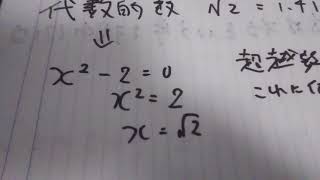 代数的数 √2 = 1.41
⇓
x² - 2 = 0
x² = 2
x = √2
超越数
これに